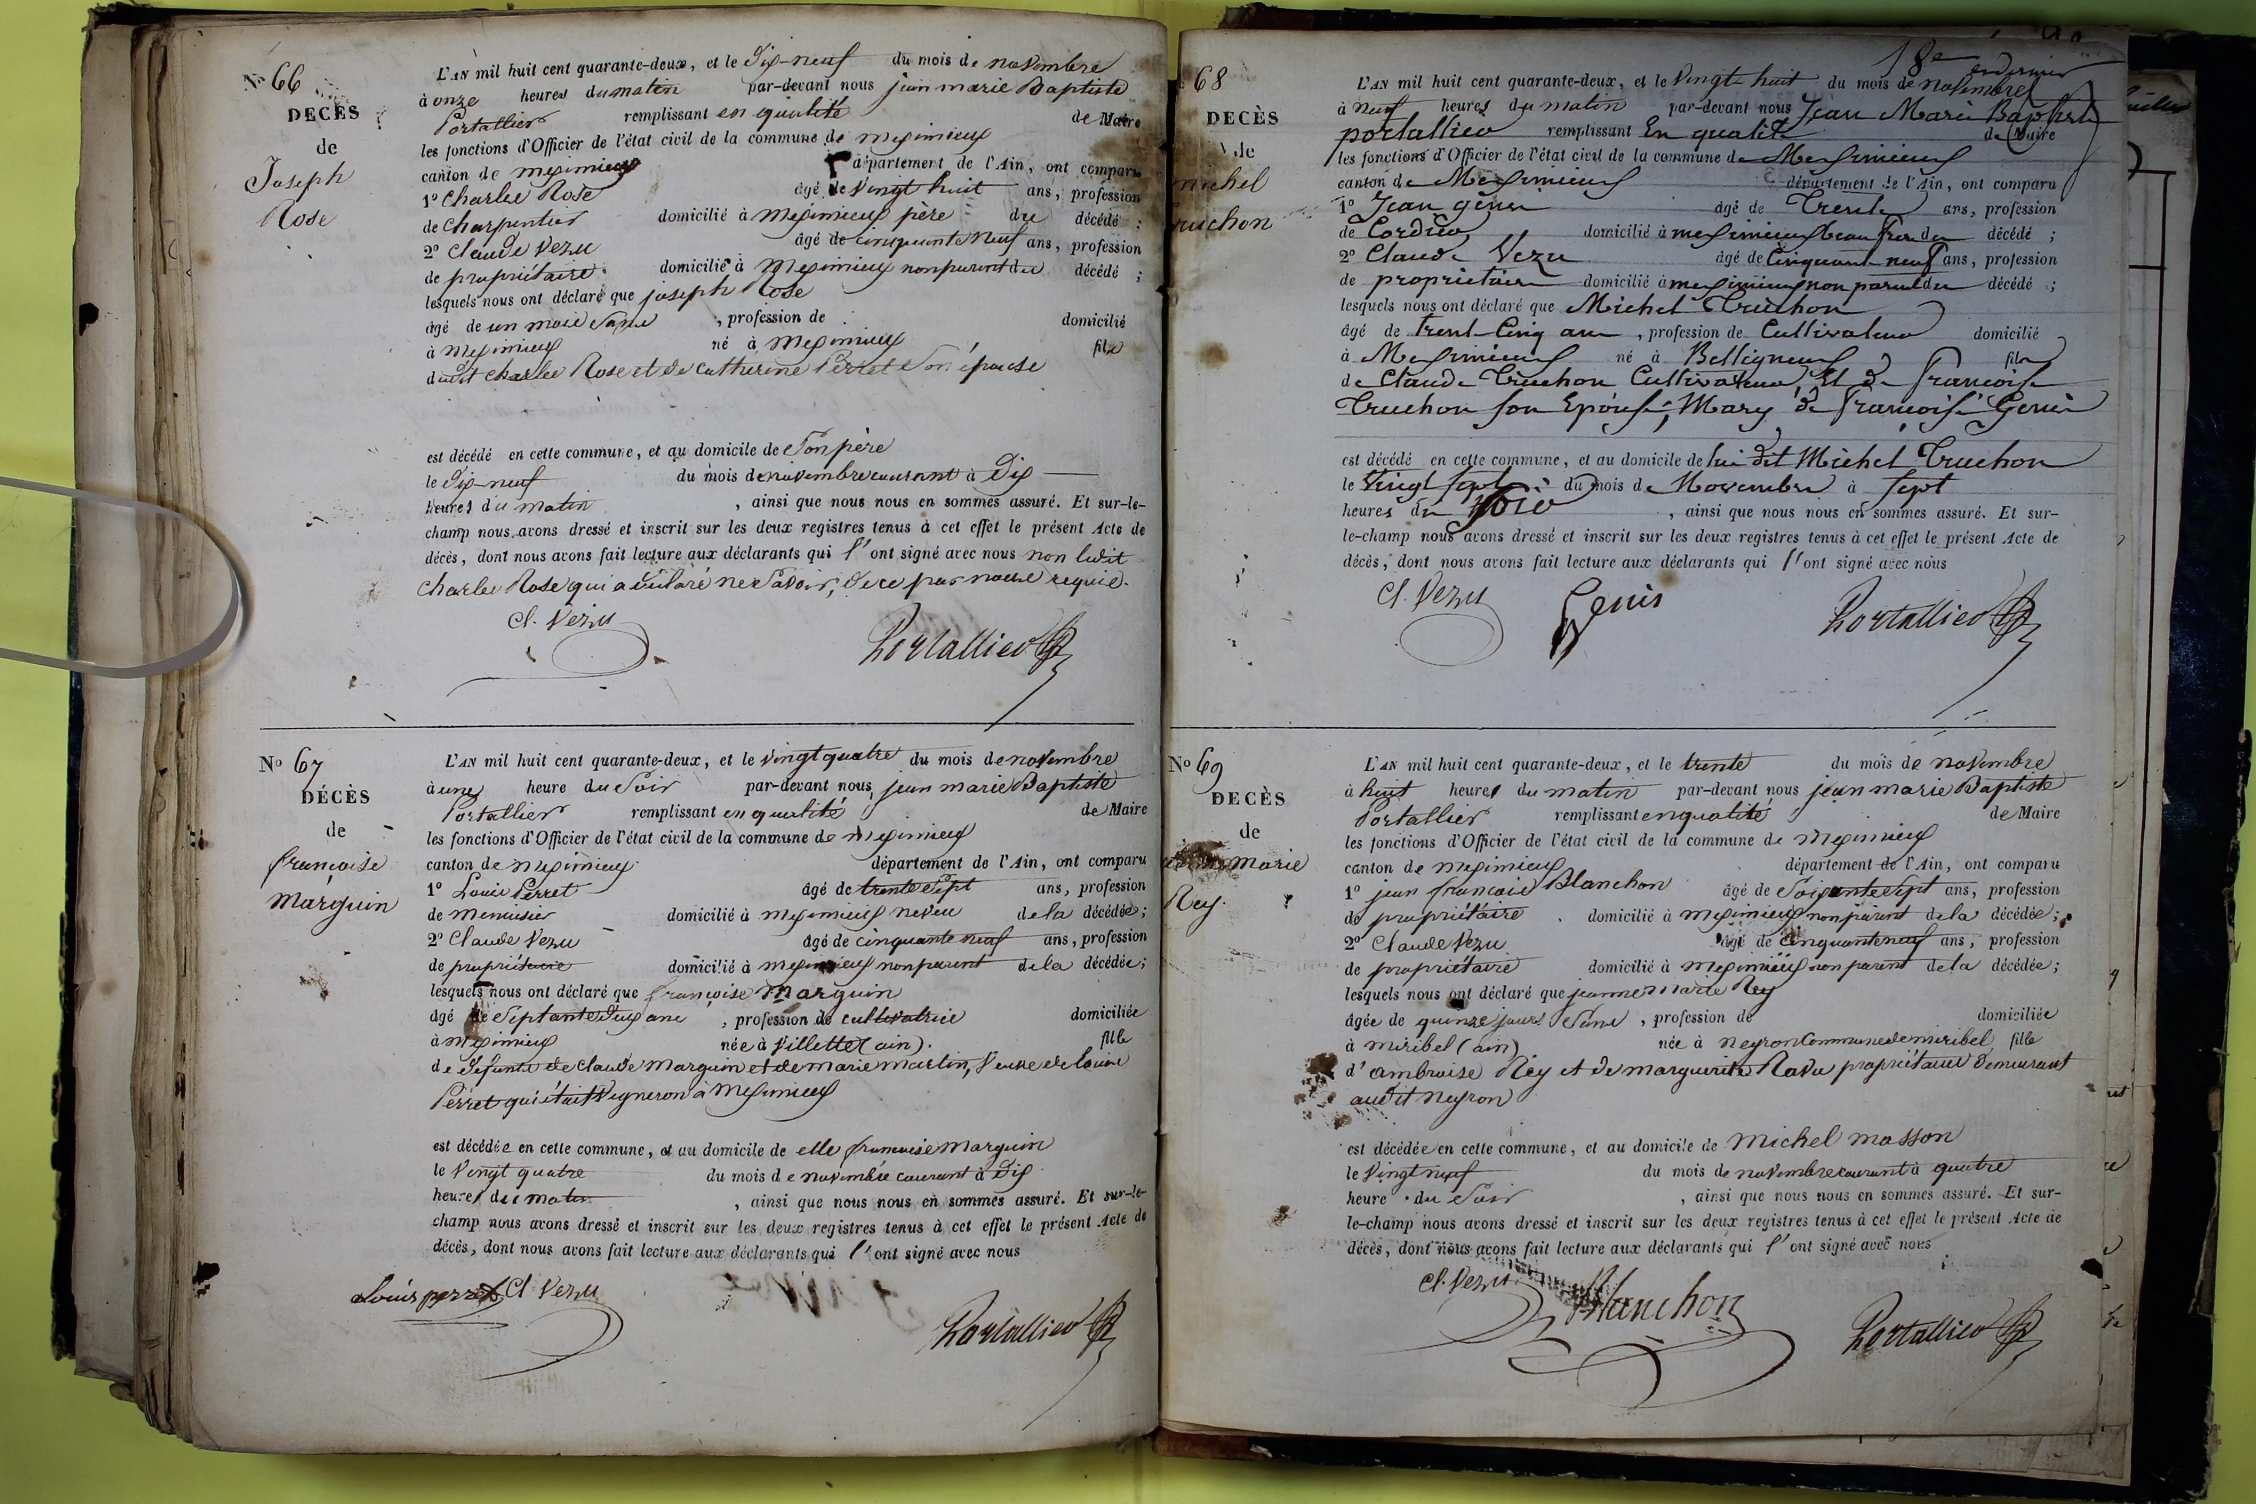 No 66
DECÈS
de
Joseph
Rose
L'AN mil huit cent quarante-deux, et le Dix-neuf du mois de novembre
à onze heures du matin par-devant nous jean marie Baptiste
Portallier remplissant en qualité de Maire
les fonctions d'Officier de l'état civil de la commune de meximieux
canton de meximieux département de l'Ain, ont comparu
1º Charles Rose âgé de vingt huit ans, profession
de charpentier domicilié à meximieux père du décédé ;
2º Claude Vezu âgé de cinquante neuf ans, profession
de propriétaire domicilié à meximieux non parent du décédé ;
lesquels nous ont déclaré que joseph Rose
âgé de un mois , profession de domicilié
à meximieux né à meximieux fils
dudit charles Rose et de Catherine Perret Son épouse
est décédé en cette commune, et au domicile de Son père
le Dix-neuf du mois de novembre courant à Dix
heures du matin , ainsi que nous nous en sommes assuré. Et sur-le-
champ nous avons dressé et inscrit sur les deux registres tenus à cet effet le présent Acte de
décès, dont nous avons fait lecture aux déclarants qui l'ont signé avec nous non ludit
charles Rose qui a déclaré ne Savoir, de ce par nous requis.
Cl. Vezu
Portallier
No 67
DÉCÈS
de
françoise
Marguin
L'AN mil huit cent quarante-deux, et le vingt quatre du mois de novembre
à une heure du Soir par-devant nous jean marie Baptiste
Portallier remplissant en qualité de Maire
les fonctions d'Officier de l'état civil de la commune de meximieux
canton de meximieux département de l'Ain, ont comparu
1º Louis Perret âgé de trente Sept ans, profession
de menuisier domicilié à meximieux neveu de la décédée;
2º Claude Vezu âgé de cinquante neuf ans, profession
de propriétaire domicilié à meximieux non parent de la décédée;
lesquels nous ont déclaré que françoise Marguin
âgé de Septante Deux ans , profession de cultivatrice domiciliée
à meximieux née à Villette (ain). fille
de Défunts de Claude Marguin et de marie martin, Veuve de Louis
Perret qui était Vigneron à meximieux
est décédée en cette commune, et au domicile de elle françoise Marguin
le vingt quatre du mois de novembre courant à Dix
heures du matin , ainsi que nous nous en sommes assuré. Et sur-le-
champ nous avons dressé et inscrit sur les deux registres tenus à cet effet le présent Acte de
décès, dont nous avons fait lecture aux déclarants qui l'ont signé avec nous
Louis perret Cl. Vezu
Portallier
18e
68
DECÈS
de
michel
Truchon
L'AN mil huit cent quarante-deux, et le Vingt huit du mois de novembre
à neuf heures du matin par-devant nous Jean Marie Baptiste
portallier remplissant En qualité de Maire
les fonctions d'Officier de l'état civil de la commune de Meximieux
canton de Meximieux département de l'Ain, ont comparu
1º Jean génis âgé de Trente ans, profession
de Cordier domicilié à meximieux beau frère du décédé ;
2º Claude Vezu âgé de Cinquante neuf ans, profession
de propriétaire domicilié à meximieux non parent du décédé ;
lesquels nous ont déclaré que Michel Truchon
âgé de trente Cinq ans , profession de Cultivateur domicilié
à Meximieux né à Belligneux fils
de Claude Truchon Cultivateur, Et de Françoise
Truchon son Epouse, Mary de Françoise Genis
est décédé en cette commune, et au domicile de lui dit Michel Truchon
le Vingt sept du mois de Novembre à sept
heures du soir , ainsi que nous nous en sommes assuré. Et sur-
le-champ nous avons dressé et inscrit sur les deux registres tenus à cet effet le présent Acte de
décès, dont nous avons fait lecture aux déclarants qui l'ont signé avec nous
Cl. Vezu Genis
Portallier
No 69
DECÈS
de
marie
Rey.
L'AN mil huit cent quarante-deux, et le trente du mois de novembre
à huit heures du matin par-devant nous jean marie Baptiste
Portallier remplissant en qualité de Maire
les fonctions d'Officier de l'état civil de la commune de meximieux
canton de meximieux département de l'Ain, ont comparu
1º jean françois Blanchon âgé de Soixante Sept ans, profession
de propriétaire domicilié à meximieux non parent de la décédée;
2º Claude Vezu âgé de cinquante neuf ans, profession
de propriétaire domicilié à meximieux non parent de la décédée;
lesquels nous ont déclaré que jeanne Marie Rey
âgée de quinze jours , profession de domiciliée
à miribel (ain) née à neyron Commune de miribel fille
d'ambroise Rey et de marguerite Ravu propriétaires Demeurant
audit neyron
est décédée en cette commune, et au domicile de michel masson
le vingt neuf du mois de novembre courant à quatre
heure du Soir , ainsi que nous nous en sommes assuré. Et sur-
le-champ nous avons dressé et inscrit sur les deux registres tenus à cet effet le présent Acte de
décès, dont nous avons fait lecture aux déclarants qui l'ont signé avec nous
Cl. Vezu Blanchon
Portallier